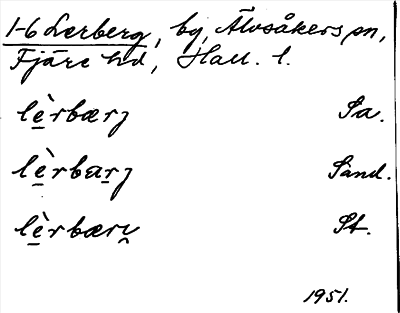 1-6 Lerberg, by, Älvsåkers sn,
Fjäre hd, Hall. l.
lè̱rbærj Sa.
lè̱rbæṟj Sand.
lè̱rbærv̯ St.
1951.